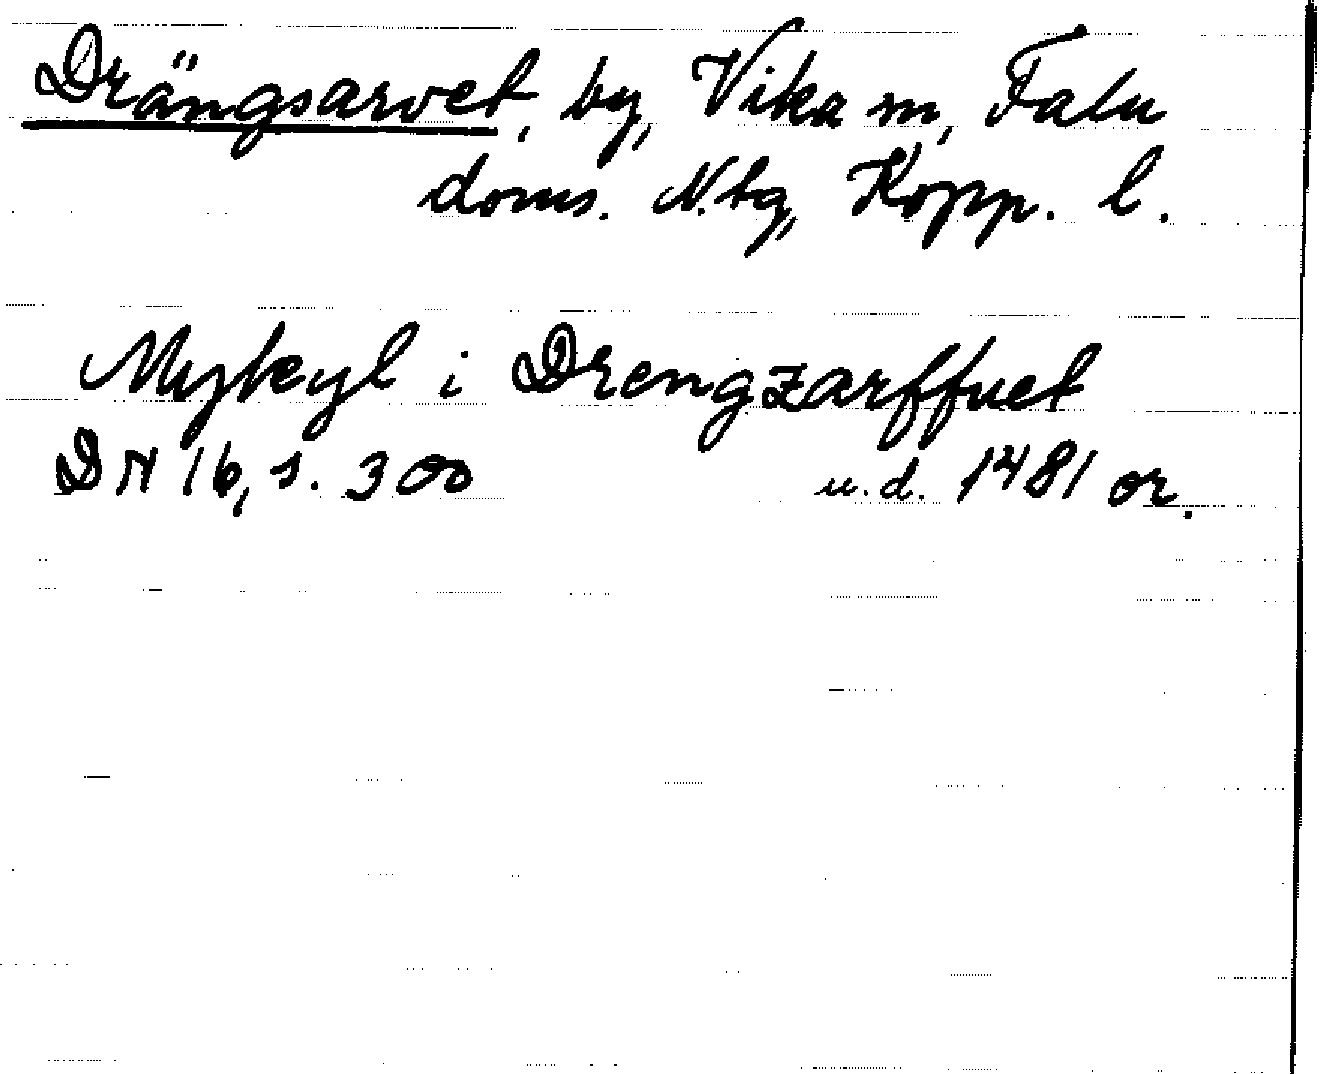 Drängsarvet, by, Vika sn, Falu
doms. N. tg, Kopp. l.
Mykyl i Drengzarffuet
DN 16, s. 300 u.d. 1481 or.